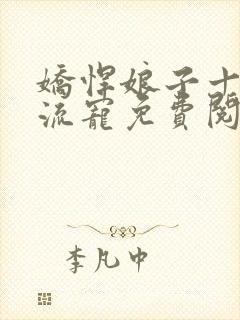 嬌悍娘子十
流寵免費閱
李凡中